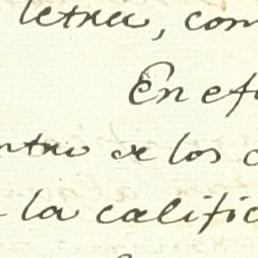 letra, com
En efe
ntro de los c
la calific